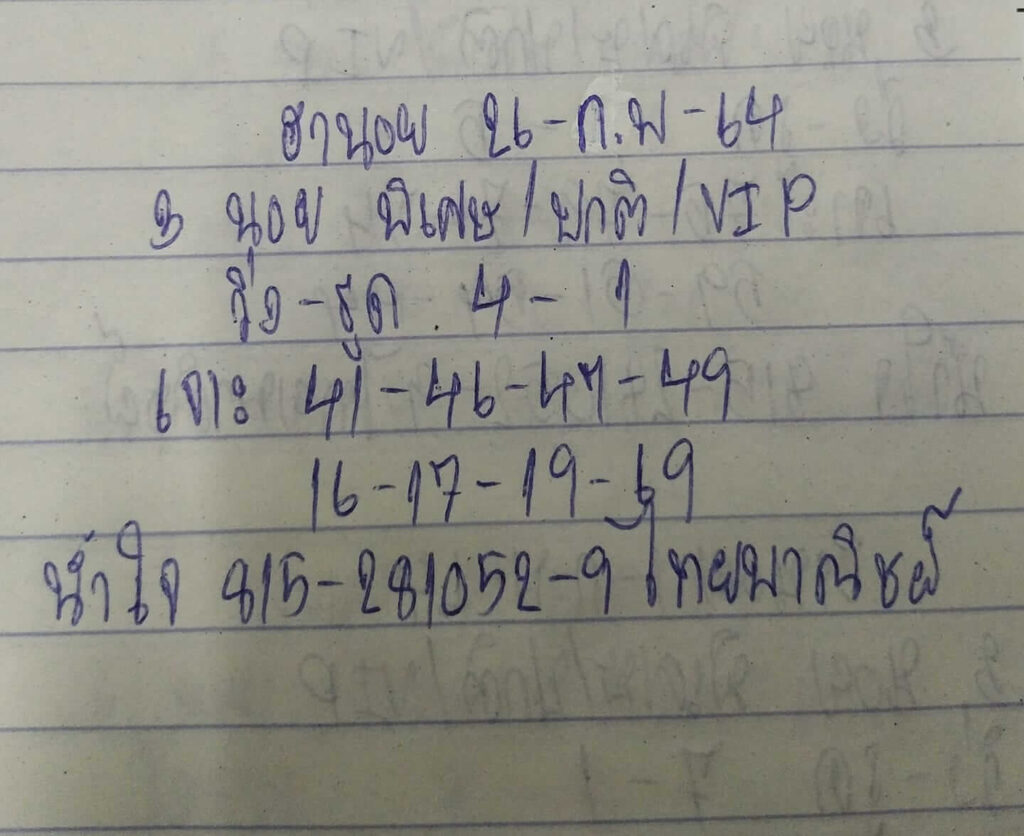 ฮานอย 26-ก.พ-64
3 นอย พิเศษ/ปกติ/VIP
วิ่ง-รูด 4-1
เจาะ 41-46-47-49
16-17-19-69
น้ำใจ 815-281052-9 ไทยพาณิชย์